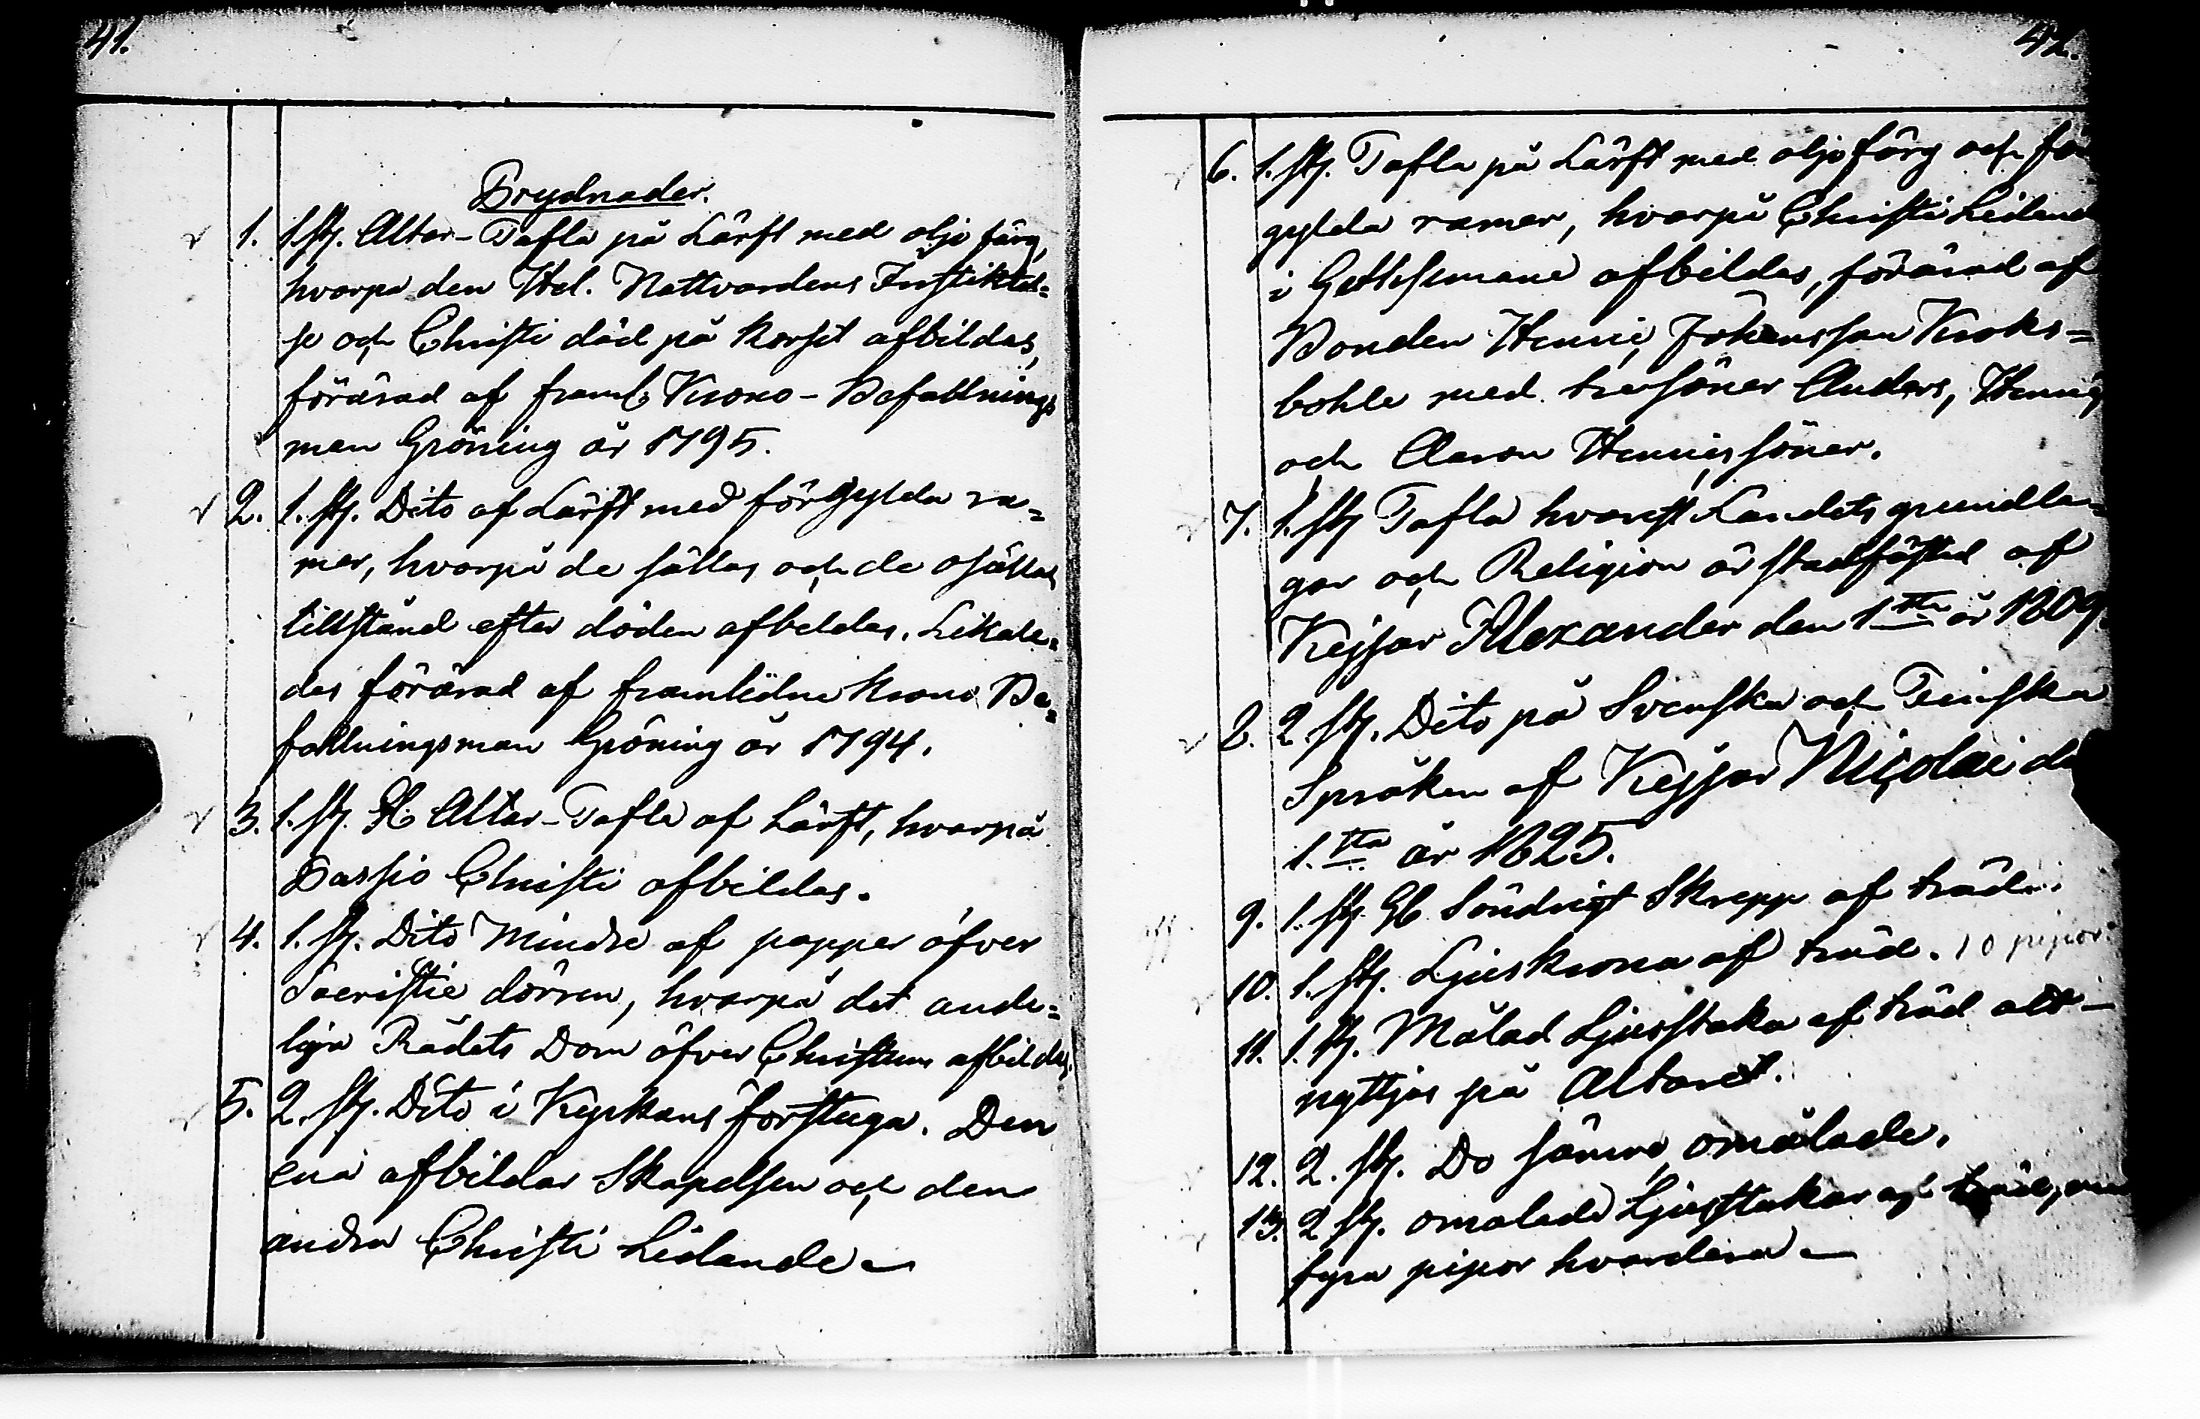 41.
Prydnader.
1. 1. st. Altar-Tafla på Lärft med oljefärg,
hvarpå den Hel. Nattvardens Instiktel=
se och Christi död på korset afbildas,
förärad af framl. Krono-Befallnings
man Gröning år 1795.
2. 1. st. Dito af Lärft med förgylda ra=
mar, hvarpå de sällas och de osällas
tillstånd efter döden afbildas. Likale=
des förärad af framlidne Krono Be=
fallningsman Gröning år 1794.
3. 1. st. Altar-Tafla af Lärft, hvarpå
Passio Christi afbildas.
4. 1. st. Dito Mindre af papper öfver
Sacristie dörren, hvarpå det ande=
liga Rådets Dom öfver Christum afbildas.
5. 2. st. Dito i Kyrkans förstuga. Den
ena afbildar Skapelsen och den
andra Christi Lidande
42.
6. 1. st. Tafla på Lärft med oljefärg och för
gylda ramar, hvarpå Christi Lidand
i Gethsemane afbildas, förärad af
Bonden Hennig Johansson Kroks=
bohle med tre söner Anders, Hennig
och Aaron Hennigssöner.
7. 1. st Tafla hvarest Landets grundla=
gar och Religion är stadfästad af
Kejsar Alexander den 1sta år 1809.
8. 2. st. Dito på Svenska och Finska
Språken af Kejsar Nicolai de
1.sta år 1825.
9. 1. st. Söndrigt Skrepp af träd.
10. 1. st. Ljuskrona af träd. 10 pipor.
11. 1. st. Målad Ljusstaka af träd att
nyttjas på Altaret.
12. 2. st. Do sämre omålade.
13. 2 st. omålade Ljusstakar af träd, med
fyra pipor hvardera